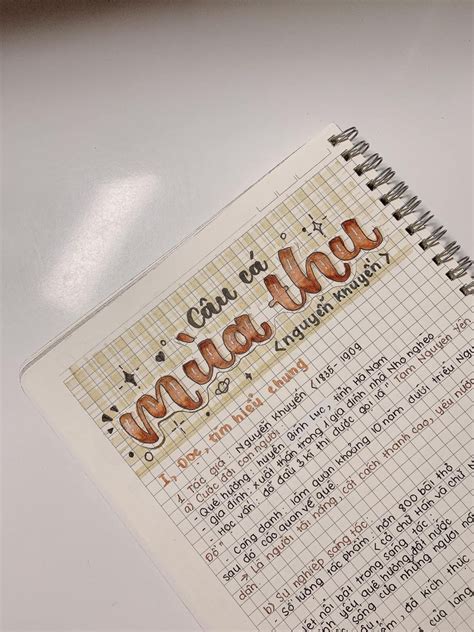 Câu cá
mùa thu
<Nguyễn Khuyến>
I, Đọc, tìm hiểu chung
1. Tác giả: Nguyễn Khuyến <1835-1909
a) Cuộc đời, con người
- Quê hương: huyện Bình Lục, tỉnh Hà Nam
- gia đình: Xuất thân trong 1 gia đình nhà Nho nghèo
- Học vấn: đỗ đầu 3 kì thi được gọi là "Tam Nguyên Yên
Đổ"
- Công danh: làm quan khoảng 10 năm dưới triều
sau đó cáo quan về quê
→ Là người tài năng, cốt cách thanh cao, yêu
dân
b) Sự nghiệp sáng tác
- Số lượng tác phẩm: hơn 800 bài thơ
<cả chữ Hán và chữ
nét nổi bật trong sáng tác
tình yêu quê hương đất nước
sống của những người
đả kích